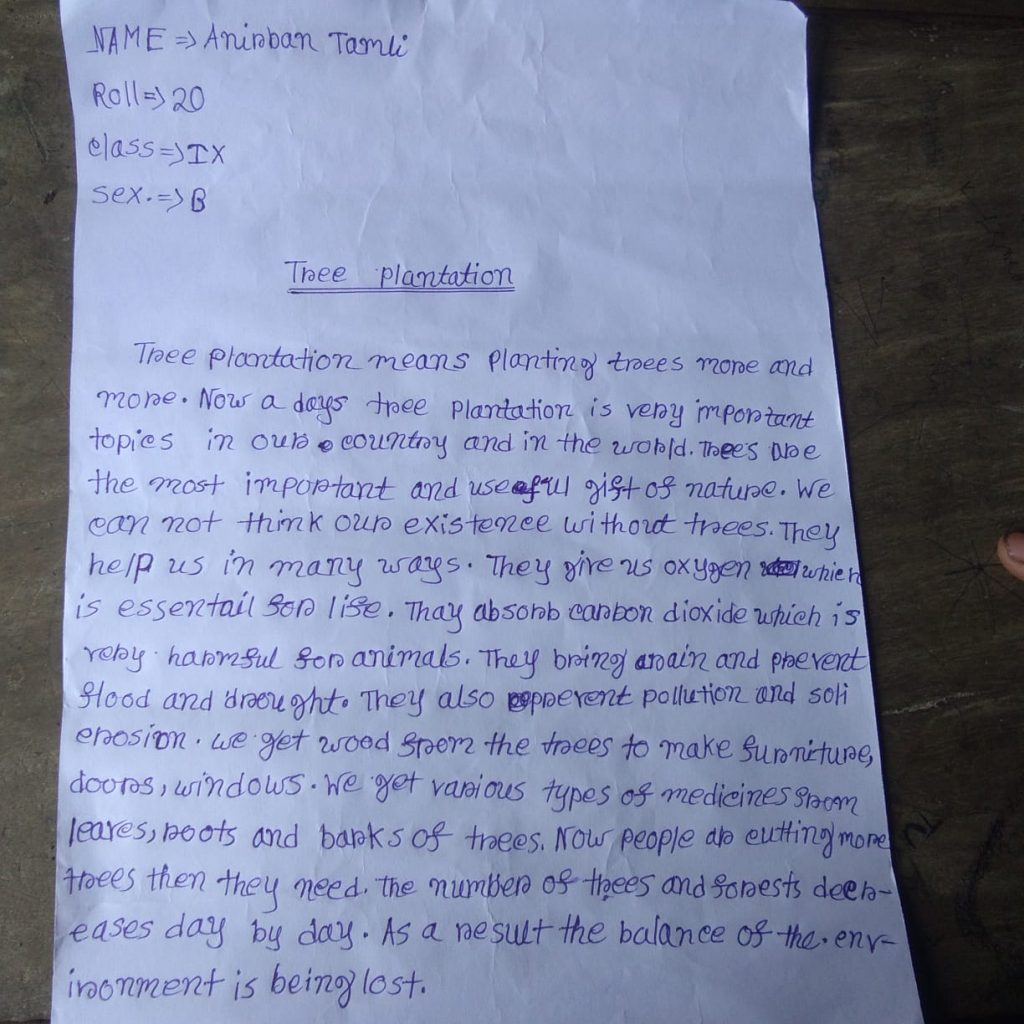 NAME => Anirban Tamli
Roll => 20
class => IX
sex. => B
Tree plantation
Tree plantation means planting trees more and
more. Now a days tree plantation is very important
topics in our country and in the world. Trees are
the most important and useful gift of nature. We
can not think our existence without trees. They
help us in many ways. They give us oxygen which
is essentail for life. Thay absorb carbon dioxide which is
very harmful for animals. They bring arain and prevent
flood and drought. They also prevent pollution and soli
erosion. we get wood from the trees to make furniture,
doors, windows. We get various types of medicines from
leaves, roots and barks of trees. Now people ar cutting more
trees then they need. The number of trees and forests decr-
eases day by day. As a result the balance of the. env-
ironment is being lost.